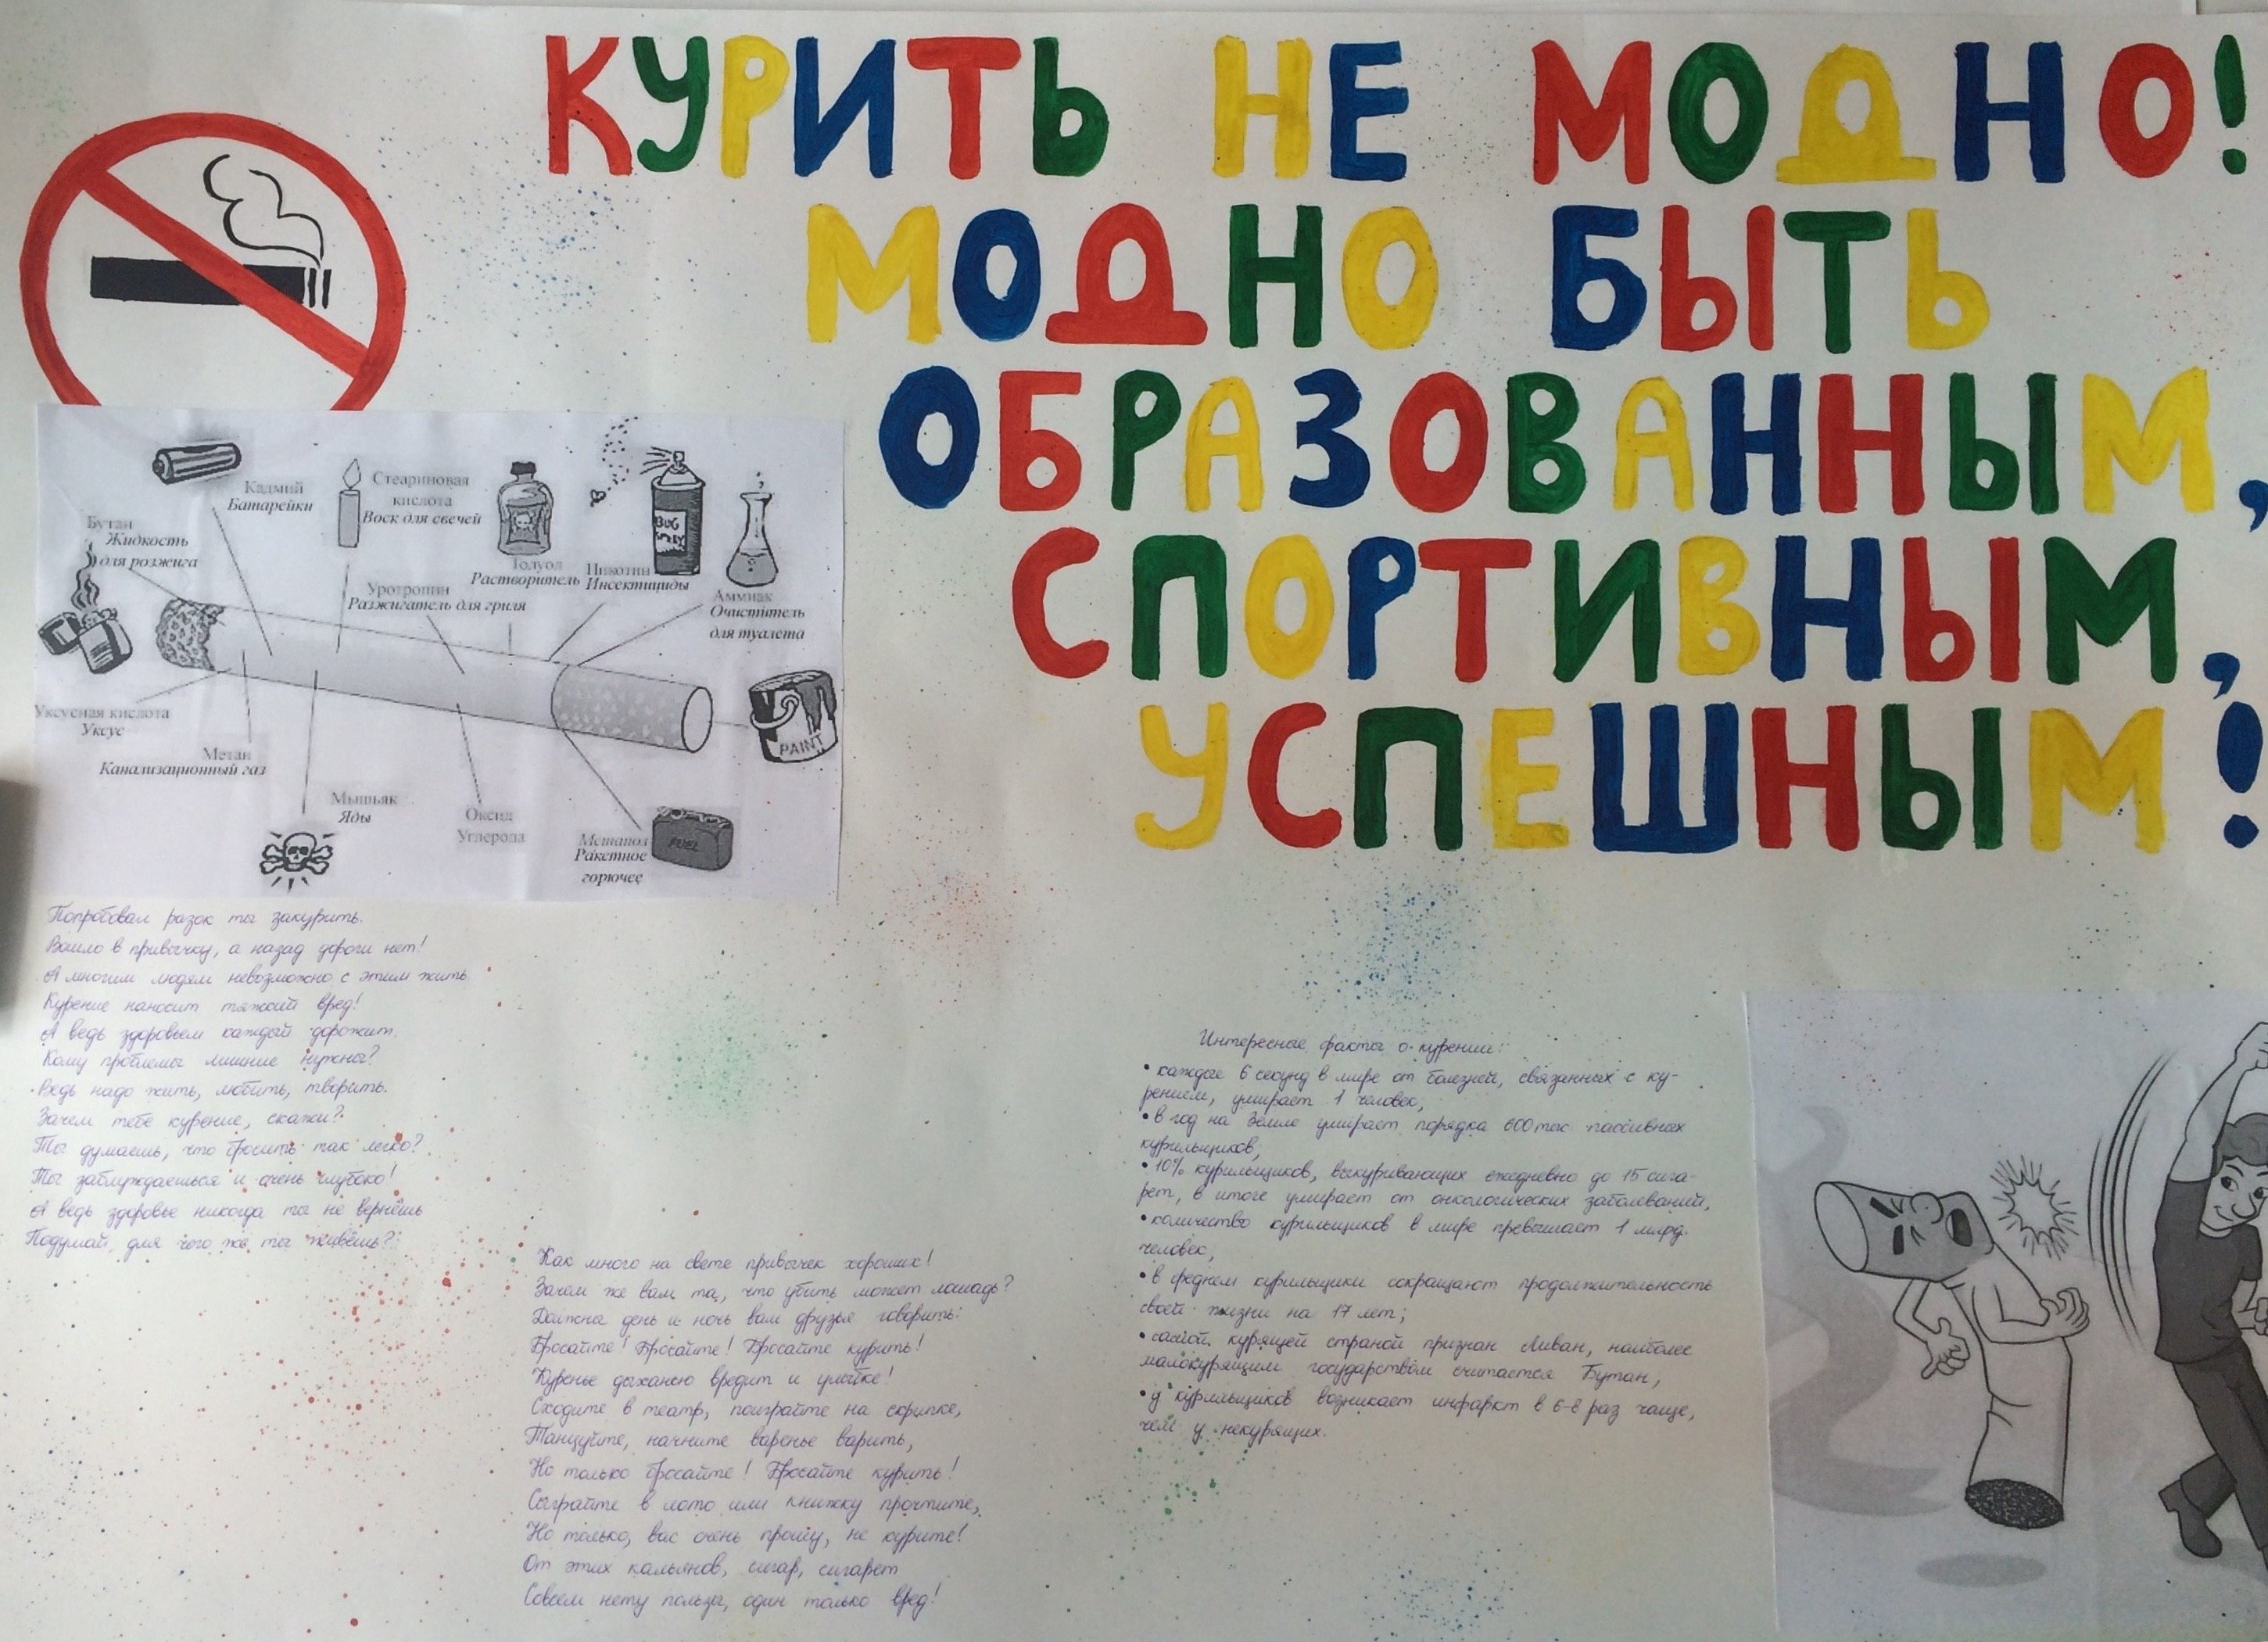 КУРИТЬ НЕ МОДНО!
МОДНО БЫТЬ
ОБРАЗОВАННЫМ,
СПОРТИВНЫМ,
УСПЕШНЫМ!
Кадмий
Батарейки
Стеариновая
кислота
Воск для свечей
Бутан
Жидкость
для розжига
Толуол
Растворитель
BUG
SPRAY
Никотин
Инсектициды
Уротропин
Разжигатель для гриля
Аммиак
Очиститель
для туалета
PAINT
Уксусная кислота
Уксус
Метан
Канализационный газ
Мышьяк
Яды
Оксид
Углерода
Метанол
Ракетное
горючее
FUEL
Попробовал разок ты закурить.
Вошло в привычку, а назад дороги нет!
А многим людям невозможно с этим жить
Курение наносит тяжкий вред!
А ведь здоровьем каждый дорожит.
Кому проблемы лишние нужны?
Ведь надо жить, любить, творить.
Зачем тебе курение, скажи?
Ты думаешь, что бросить так легко?
Ты заблуждаешься и очень глубоко!
А ведь здоровье никогда ты не вернёшь
Подумай, для чего же ты живёшь?
Как много на свете привычек хороших!
Зачем же вам та, что убить может лошадь?
Должны день и ночь вам друзья говорить:
Бросайте! Бросайте! Бросайте курить!
Куренье дыханью вредит и улыбке!
Сходите в театр, поиграйте на скрипке,
Танцуйте, начните варенье варить,
Но только бросайте! Бросайте курить!
Сыграйте в лото или книжку прочтите,
Но только, вас очень прошу, не курите!
От этих кальянов, сигар, сигарет
Совсем нету пользы, один только вред!
Интересные факты о курении:
• каждые 6 секунд в мире от болезней, связанных с ку-
рением, умирает 1 человек,
• в год на Земле умирает порядка 600 тыс пассивных
курильщиков,
• 10% курильщиков, выкуривающих ежедневно до 15 сига-
рет, в итоге умирает от онкологических заболеваний,
• количество курильщиков в мире превышает 1 млрд.
человек,
• в среднем курильщики сокращают продолжительность
своей жизни на 17 лет;
• самой курящей страной признан Ливан, наиболее
малокурящим государством считается Бутан,
• у курильщиков возникает инфаркт в 6-8 раз чаще,
чем у некурящих.